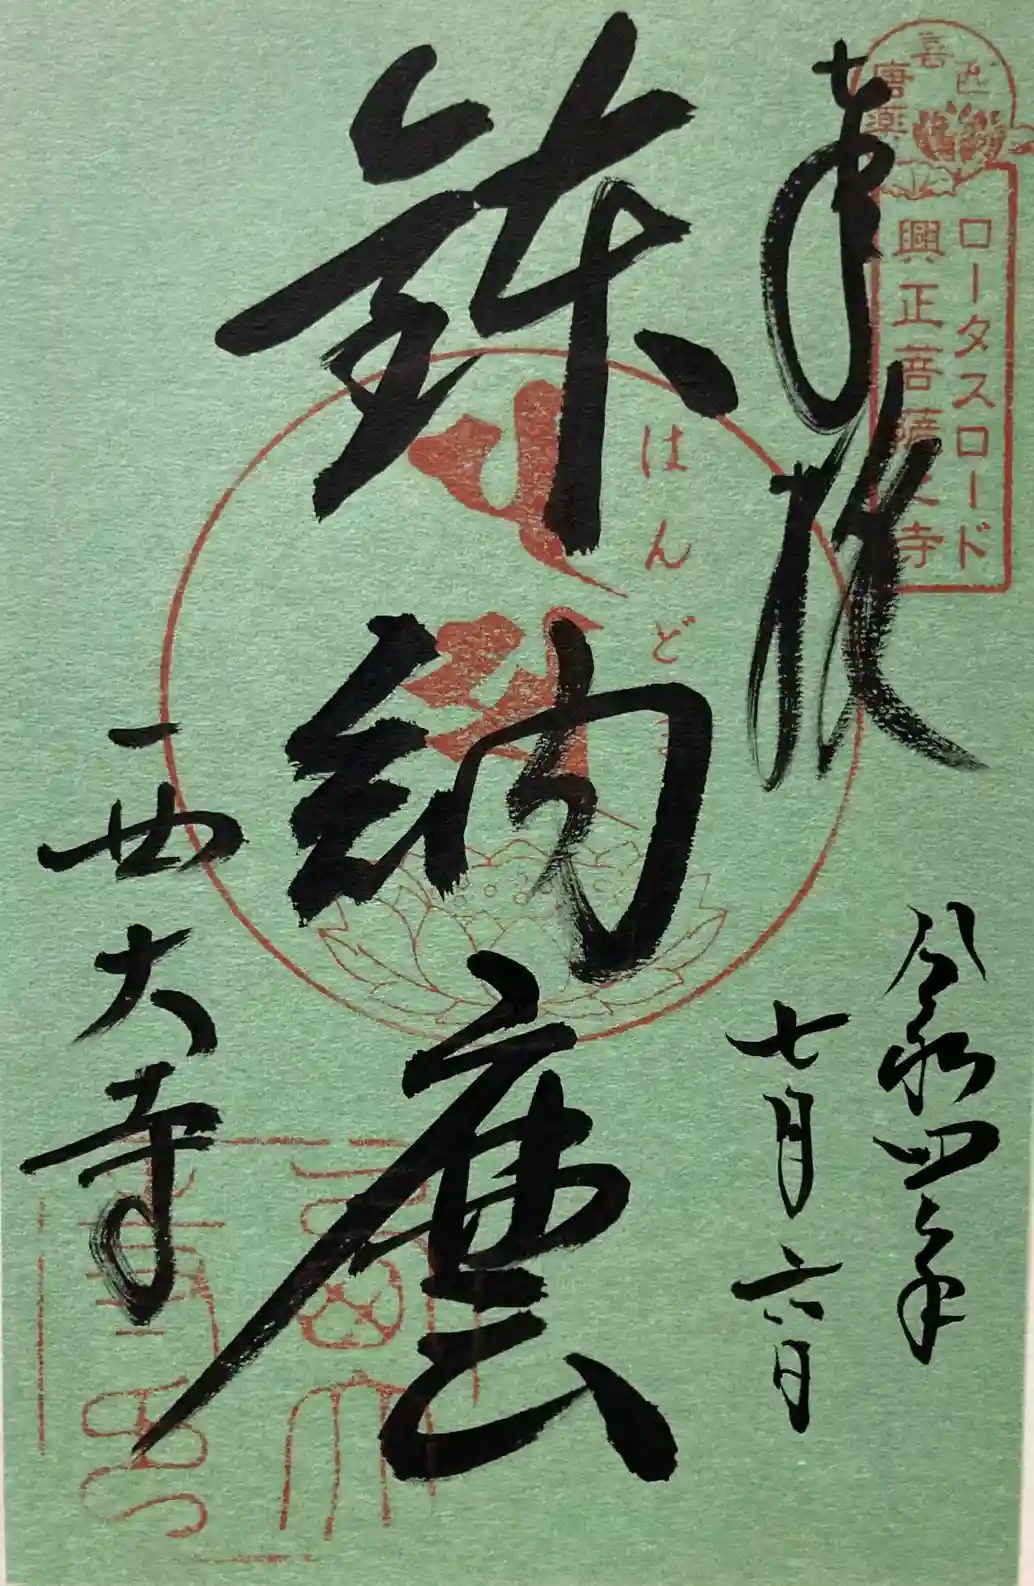 奉拝
ロータスロード
興正菩薩之寺
唐
喜
西
薬
令和四年
七月六日
鉢納麼
はんど
西大寺